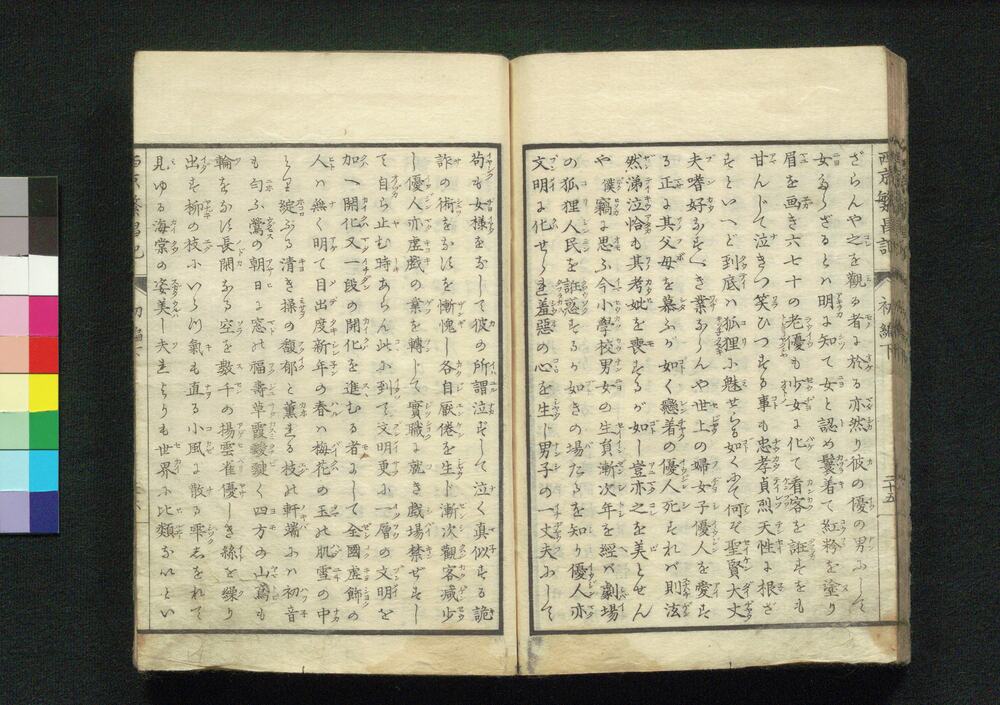 西京繁昌記 初編下 二十五
ざらんや之を觀る者に於る亦然り彼の優の男ふして
女ふらざるとハ明に知て女と認め鬟着て紅粉を塗り
眉を画き六七十の老優も少女に化て看客を誑すをも
甘んじて泣きつ笑ひつする事も忠孝貞烈天性に根ざ
すといへど到底ハ狐狸に魅せらるゝ如くにて何ぞ聖賢大丈
夫嗜好なすべき業ならんや世上の婦女子優人を愛す
る正に其父母を慕ふが如く戀着の優人死すれバ則法
然涕泣恰も其考妣を喪するが如し豈亦之を美とせん
や 僕竊に思ふ今小學校男女の生員漸次年を經バ劇場
の狐狸人民を誑惑するが如きの場たるを知り優人亦
文明に化せられ羞惡の心を生じ男子の一丈夫ふして
苟も女樣をなして彼の所謂泣ずして泣く真似する詭
詐の術をなすを慚愧し各自厭倦を生じ漸次觀客减少
し優人亦虚戯の業を轉じて實職に就き戯場禁ぜずし
て自ら止む時あらん此に到て文明更に一層の文明を
加へ開化又一段の開化を進むる者にして全國虚飾の
人ハ無く明て目出度新年の春ハ梅花の玉の肌雪の中
より綻ぶる清き操の馥郁と薫れる枝の軒端にハ初音
も匂ふ鶯の朝日に窓の福壽草霞靉靆く四方の山鳶も
輪をなす長閑なる空を數千の揚雲雀優しき絲を繰り
出す柳の枝にいと氣も直る小風に散る雫志をれて
見ゆる海棠の姿美し夫よりも世界に比類ないとい
西京繁昌記 初編下